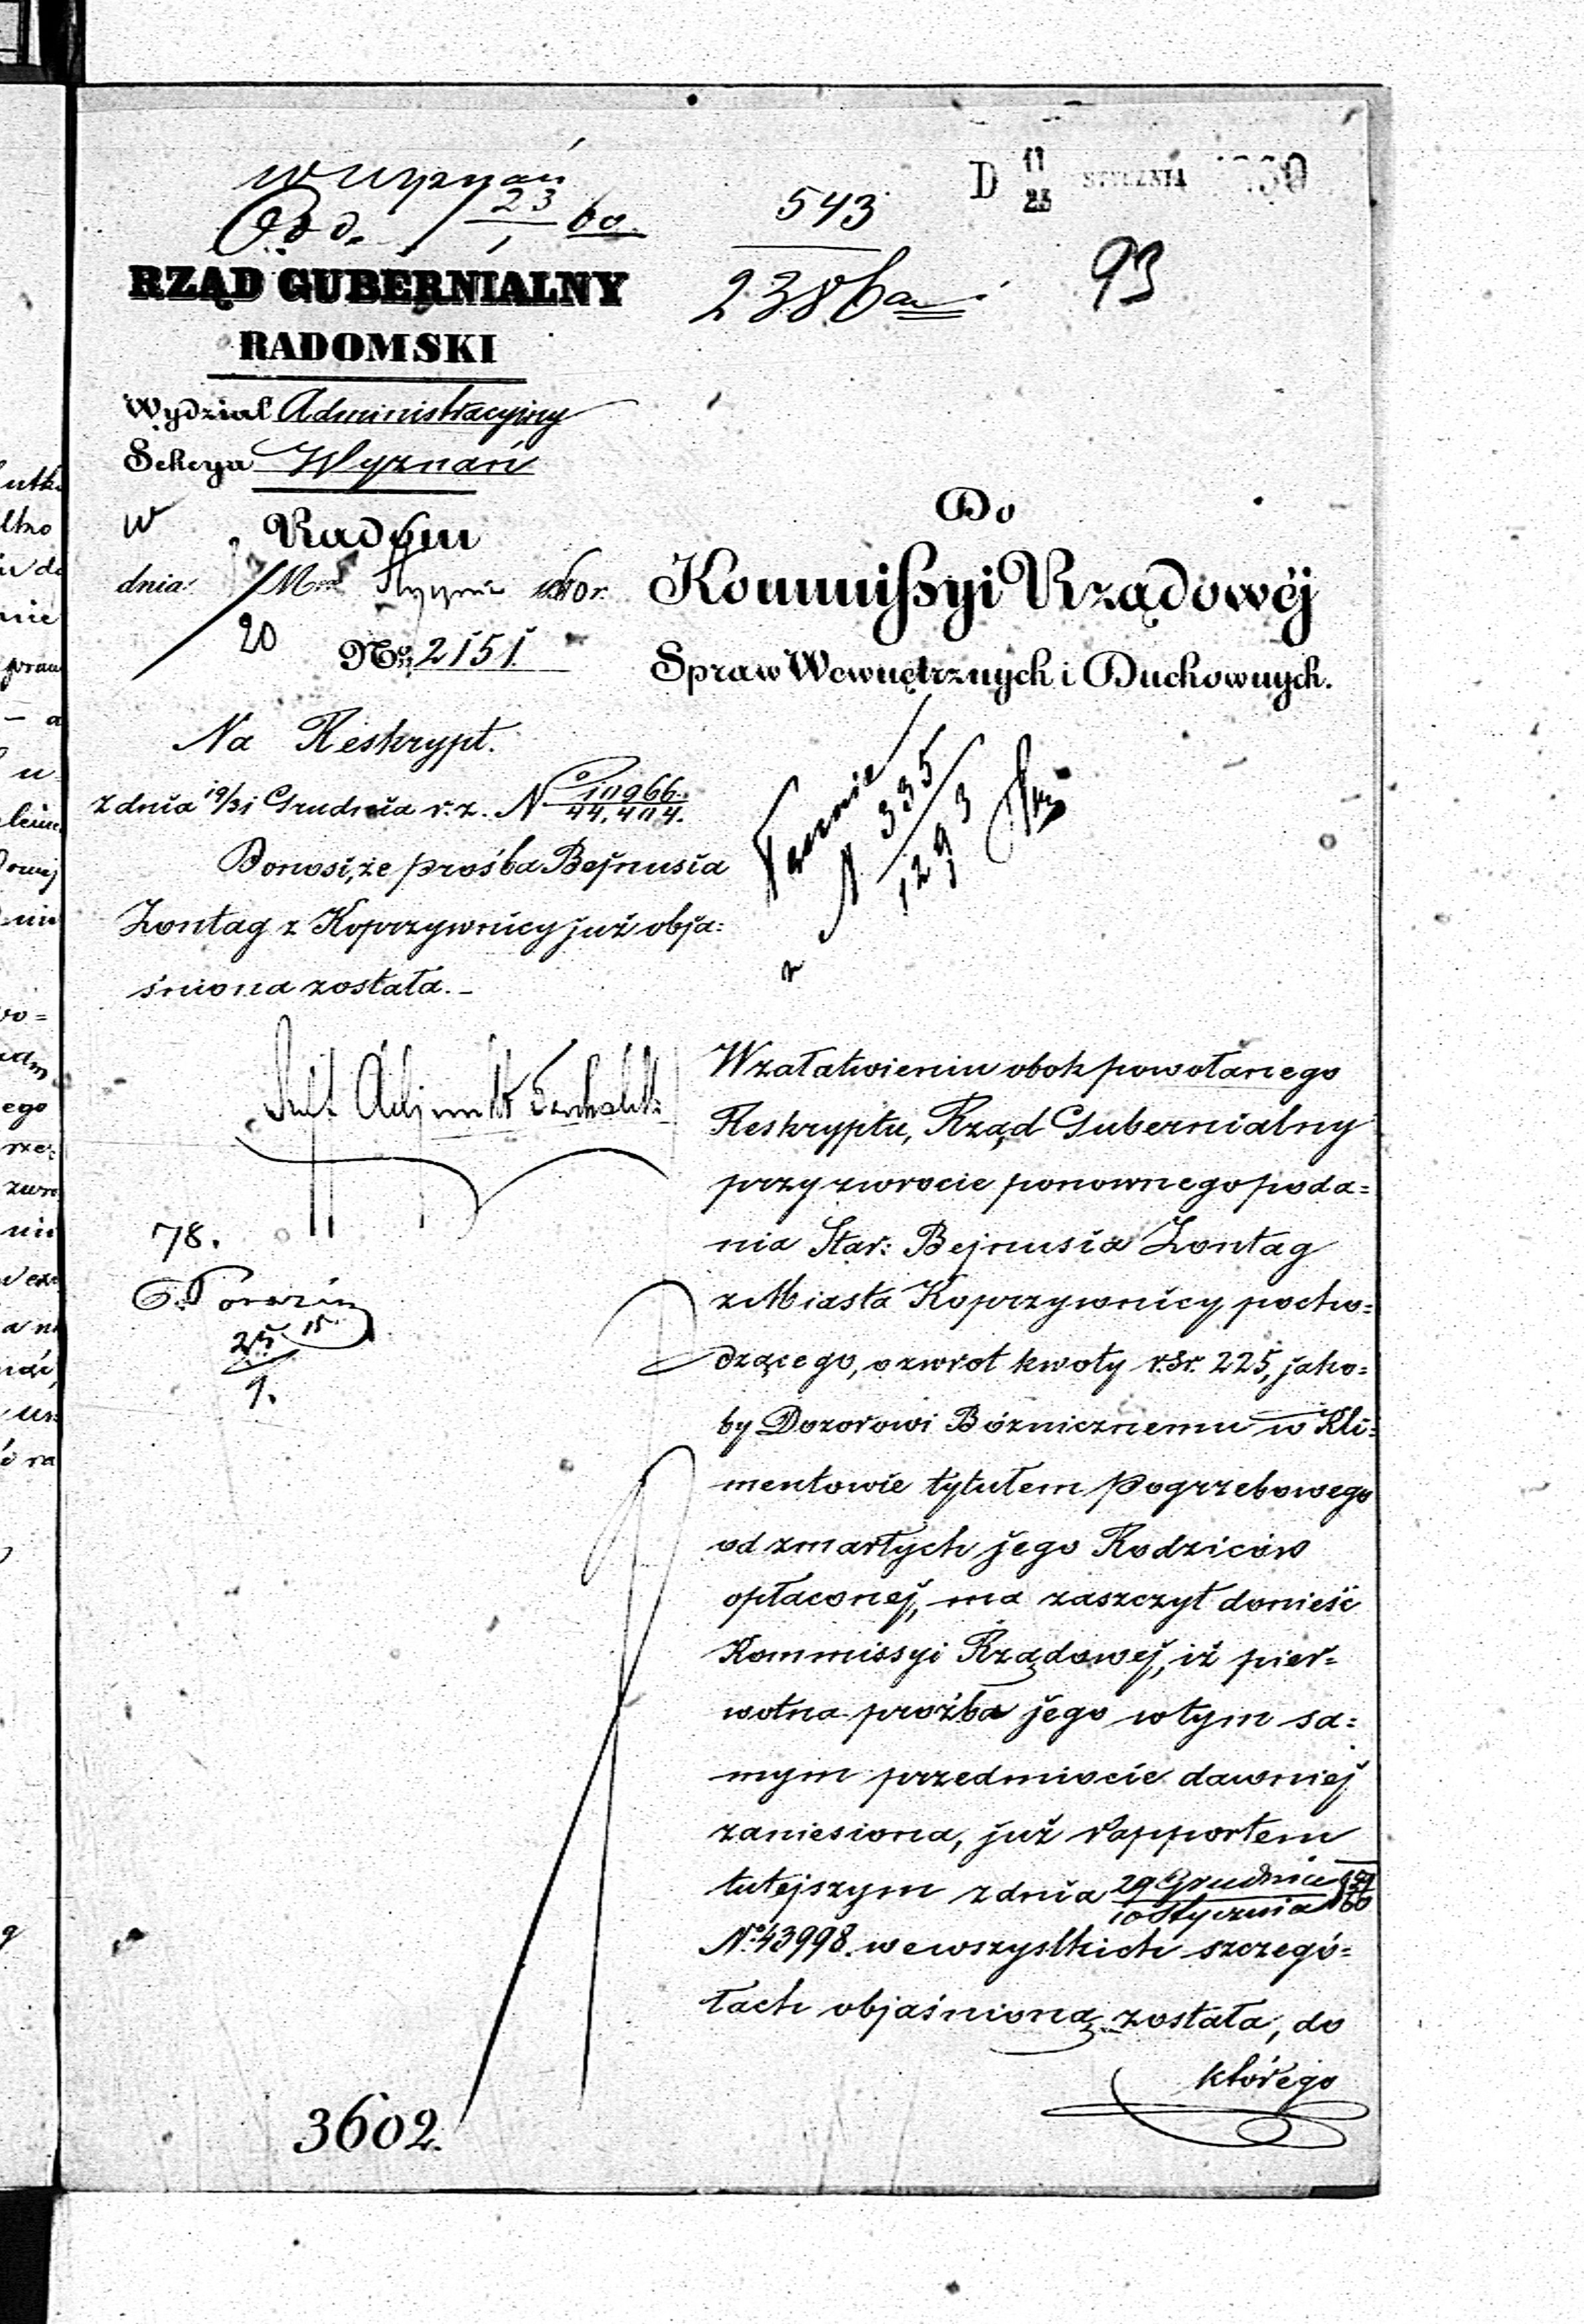 wyznań
Odd. 23/1 60.
543
2386
D 11/23 STYCZNIA 1860
93
RZĄD GUBERNIALNY
RADOMSKI
Wydział Administracyjny
Sekcya Wyznań
w Radom
dnia 8/20 M Stycznia 1860 r.
No 2151.
Do
Kommissyi Rządowéj
Spraw Wewnętrznych i Duchownych.
Na Reskrypt.
z dnia 19/31 Grudnia r. z. No 10966/44,404.
Donosi, że prośba Bejnusia
Zontag z Koprzywnicy już obja:
śniona została. –
N 335
1293
78.
25/1.
W załatwieniu obok powołanego
Reskryptu, Rząd Gubernialny
przy zwrocie ponownego poda=
nia Star: Bejnusia Zontag
z Miasta Koprzywnicy pocho=
dzącego, o zwrot kwoty r.sr. 225, jako=
by Dozorowi Bóżnicznemu w Kli=
mentowie tytułem Pogrzebowego
od zmarłych jego Rodziców
opłaconej, ma zaszczyt donieść
Kommissyi Rządowej, iż pier=
wotna proźba jego w tym sa=
mym przedmiocie dawniej
zaniesiona, już rapportem
tutejszym z dnia 29 Grudnia/10 Stycznia 1859/60
No 43998. we wszystkich szczegó=
łach objaśnioną została, do
którego
3602.